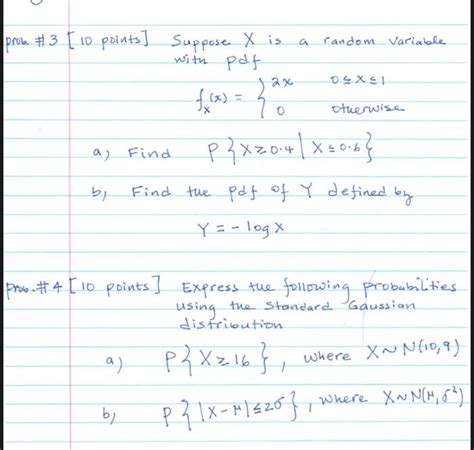 prob. #3 [10 points] Suppose X is a random variable
with pdf
f_X(x) = { 2x 0≤x≤1
0 otherwise
a) Find P{X≥0.4 | X≤0.6}
b) Find the pdf of Y defined by
Y = - log X
Prob. #4 [10 points] Express the following probabilities
using the standard Gaussian
distribution
a) P{X≥16}, where X~N(10,9)
b) P{|X-μ|≤2σ}, where X~N(μ,σ²)